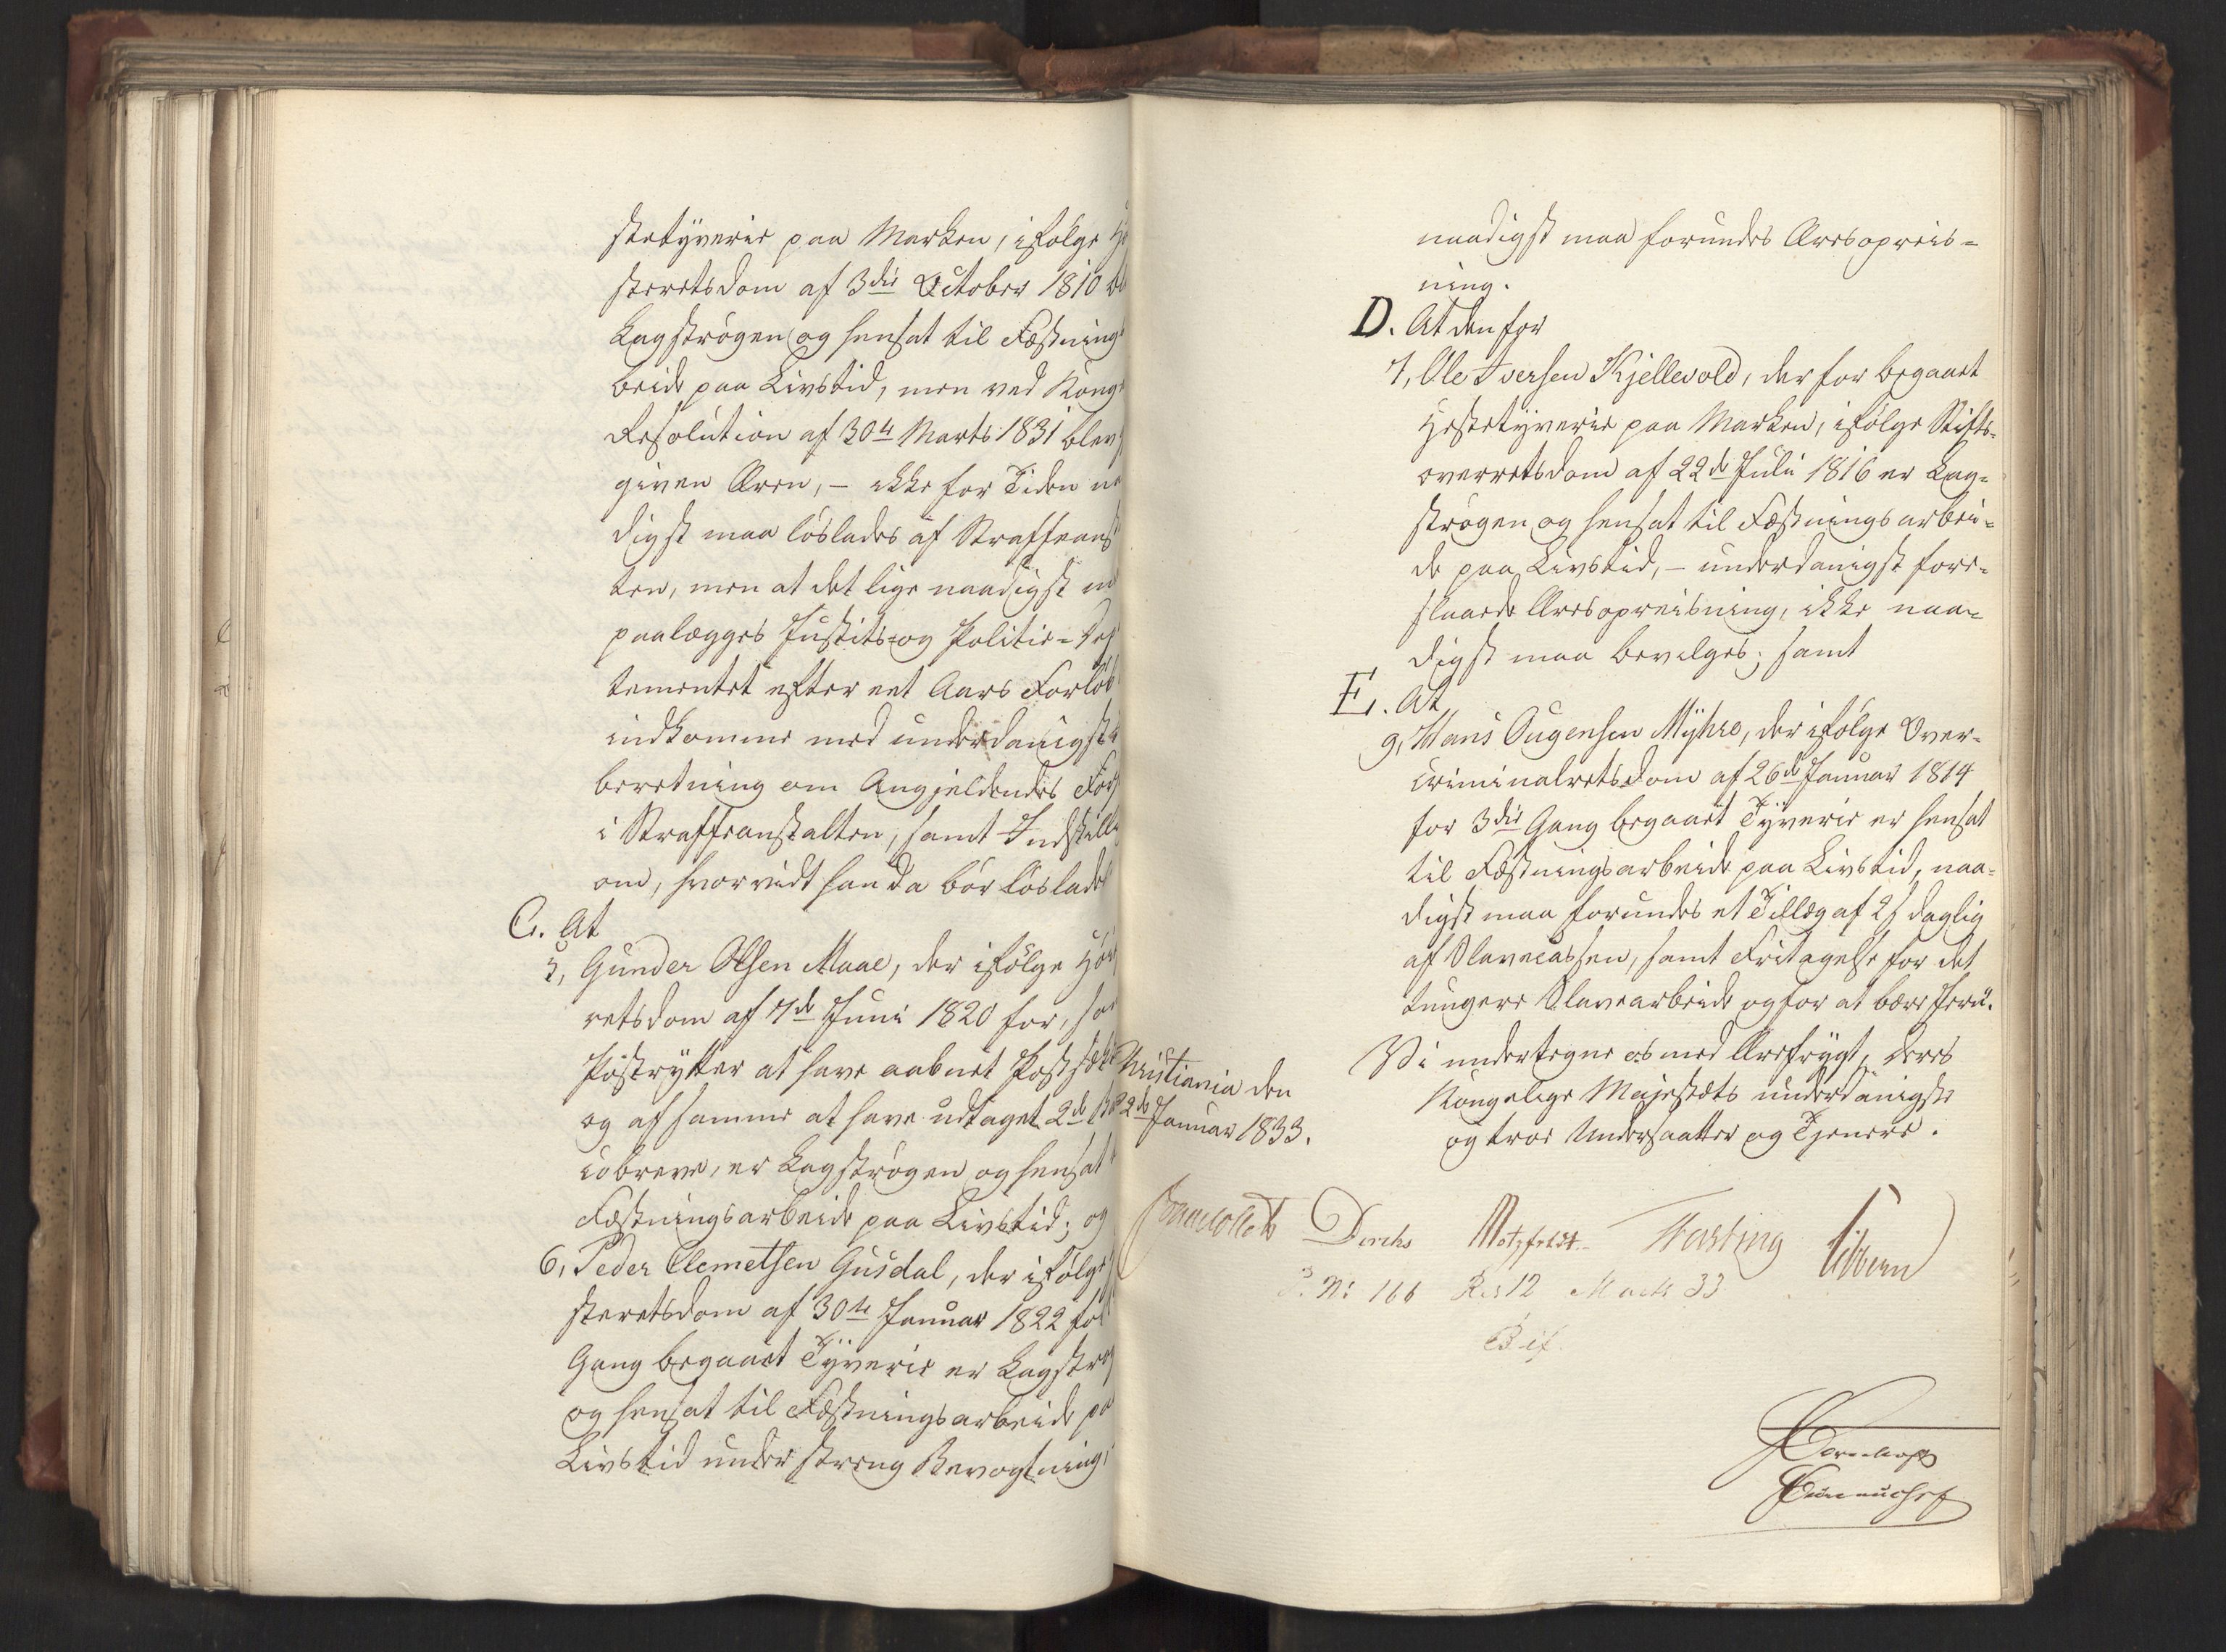 stetyverie paa Marken, ifølge Hø
steretsdom af 3die October 1810 bl
Kagstrøgen og hensat til Fæstning
beide paa Livstid, men ved Kong
Resolution af 30te Marts 1831 blev
given Æren, – ikke for Tiden na
digst maa løslades af Straffeans
ten, men at det lige naadigst m
paalægges Justits- og Politie-Dep
tementet efter eet Aars Forløb
indkomme med underdanigst
beretning om Angjeldendes Forh
i Straffeanstalten, samt Indstill
om, hvorvidt han da bør løslades
C. At
5, Gunder Olsen Maae, der ifølge Høie
retsdom af 7de Juni 1820 for, som
Postrytter at have aabnet Postsækk
og af samme at have udtaget 2de Ban
cobreve, er Kagstrøgen og hensat
Fæstningsarbeide paa Livstid; og
6, Peder Clemetsen Gusdal, der ifølge
steretsdom af 30te Januar 1822 for
Gang begaaet Tyverie er Kagstrøg
og hensat til Fæstningsarbeide pa
Livstid under streng Bevogtning,
naadigst maa forundes Æresopreis-
ning.
D. At den for
7, Ole Iversen Kjellevold, der for begaaet
Hestetyverie paa Marken, ifølge Stifts-
overretsdom af 22de Juli 1816 er Kag-
strøgen og hensat til Fæstningsarbei-
de paa Livstid, – underdanigst fore-
slaaede Æresopreisning, ikke naa-
digst maa bevilges; samt
E. At
9, Hans Ougensen Myhre, der ifølge Over-
criminalretsdom af 26de Januar 1814
for 3die Gang begaaet Tyverie er hensat
til Fæstningsarbeide paa Livstid, naa-
digst maa forundes et Tillæg af 2 s daglig
af Slavecassen, samt Fritagelse for det
tungere Slavearbeide og for at bære Jern.
Vi undertegne os med Ærefrygt, Deres
Kongelige Majestæts underdanigste
og troe Undersaatter og Tjenere.
Christiania den
22de Januar 1833.
Jonas Collett Diriks Motzfeldt Fasting Sibbern
No 166 Res 12 Marts 33
Bif.